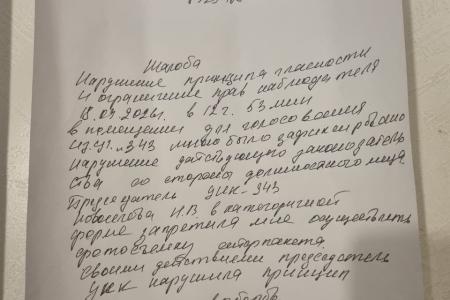 Жалоба
Нарушение принципа гласности
и ограничение прав наблюдателя
в 12 г. 53 мин
в помещении для голосования
343 мною было зафиксировано
нарушение действующего законодатель
ства со стороны должностного лица.
Председатель УИК-343
И.В. в категоричной
форме запретила мне осуществлять
фотосъёмку
Своими действиями председатель
УИК нарушила принцип